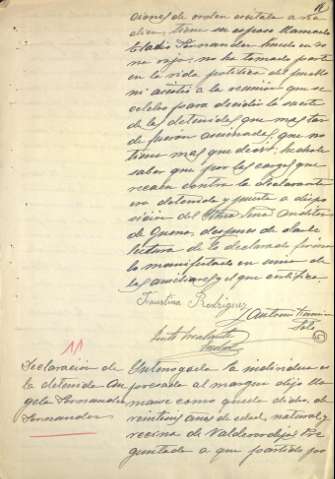 11
ciones de orden
dice; tiene su esposo llamado
Eladio Fernandez huido en zo
na roja; no ha tomado parte
en la vida politica del pueblo
ni asistió a la reunion que se
celebro para decidir la suerte
de los detenidos que mas tar
de fueron asesinados, que no
tiene mas que decir; hechole
saber que por los cargos que
recaen contra la declarante
era detenida y puesta a dispo
sición del Auditor
de Guerra, despues de darle
lectura de lo declarado firma
lo manifestado en union de
los auxiliares y el que certifica.
Faustina Rodriguez
Antonio
11
Declaración de
la detenida An
gela Fernandez
Fernandez
Interrogada la individua ex
presada al margen dijo lla
marse como queda dicho, de
veintiun años de edad, natural y
vecina de Valderrodrigo Pre
guntada a que partido per